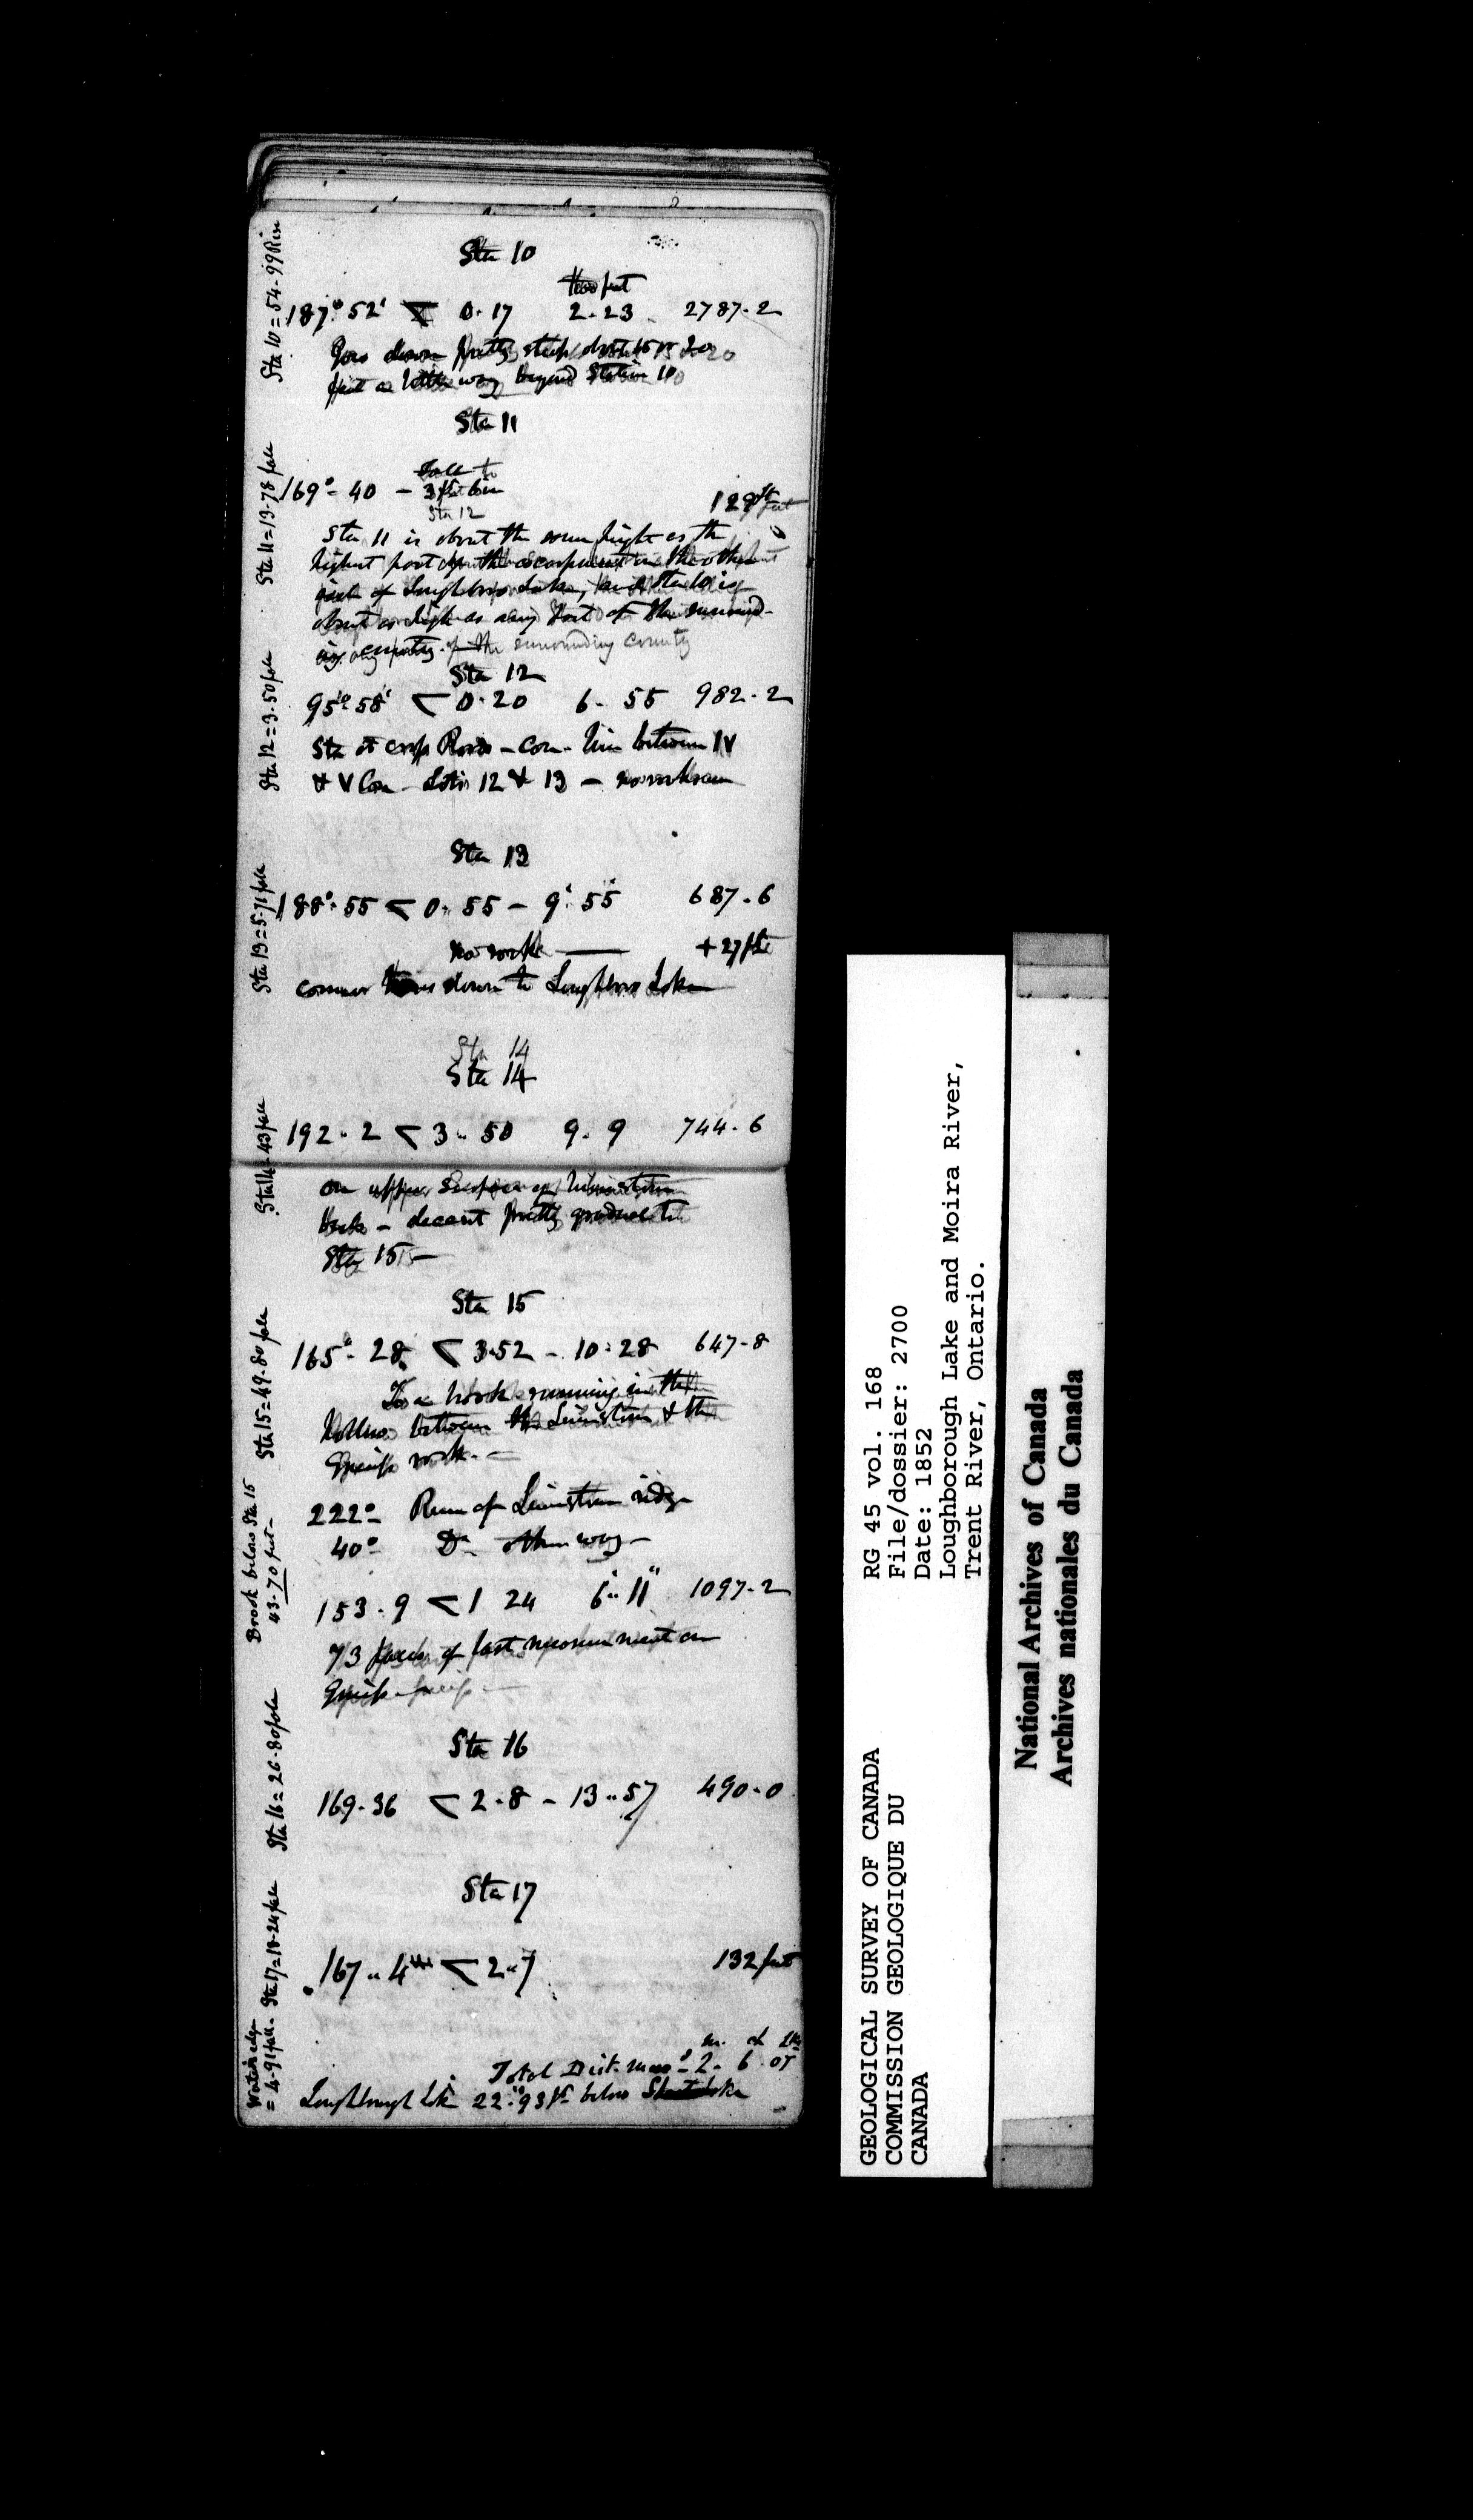 Sta 10
Two feet
187° 52' < 0.17 2-23 2787-2
Goes down pretty steep about 15 or 20
feet a little way beyond Station 10
Sta 11
Fall to
169°- 40 - 3 ft 6 in
Sta 12
129 feet
Sta 11 is about the same hight as the
highest part of the escarpment on the other
side of Loughboro Lake, and Sta 10 is
about as high as any part of the surround-
ing country. of the surrounding county
Sta 12
95° 58' < 0.20 6- 55 982-2
Sta at cross Roads - Con- line between IV
& V Con - Lots 12 & 13 - no rock seen
Sta 13
188°.55 < 0.. 55 - 9' 55 687.6
no rock +27 fte
down to Loughboro Lake
Sta 14
Sta 14
192- 2 < 3.. 50 9- 9 744-6
on upper Surface of limestone
beds - decent pretty gradual to
Sta 15 -
Sta 15
165°- 28 < 3.52 - 10-28 647-8
To a brook running in the
hollow between the Limestone & the
Gneiss rock. -
222°- Run of Limestone ridge
40°- Do- other way -
153-9 < 1 24 6.. 11 1097-2
73 paces of last measurement on
gneiss
Sta 16
169-36 < 2-8 - 13..57 490-0
Sta 17
167.. 4 < 2..7 132 feet
m. ch lks
Total Dist. meas'd - 2- 6.05
Loughborough Lk 22..93 ft below Lake
Sta 10 = 54-99 Rise
Sta 11 = 13-78 fall
Sta 12 = 3-50 fall
Sta 13 = 5-71 fall
Sta 14 - 43 fall
Sta 15 = 49-80 fall
Brook below Sta 15
43-70 feet -
Sta 16 = 26-80 fall
Sta 17 = 18-24 fall
Water's edge
= 4-91 fall
RG 45 vol. 168
File/dossier: 2700
Date: 1852
Loughborough Lake and Moira River,
Trent River, Ontario.
GEOLOGICAL SURVEY OF CANADA
COMMISSION GEOLOGIQUE DU
CANADA
National Archives of Canada
Archives nationales du Canada